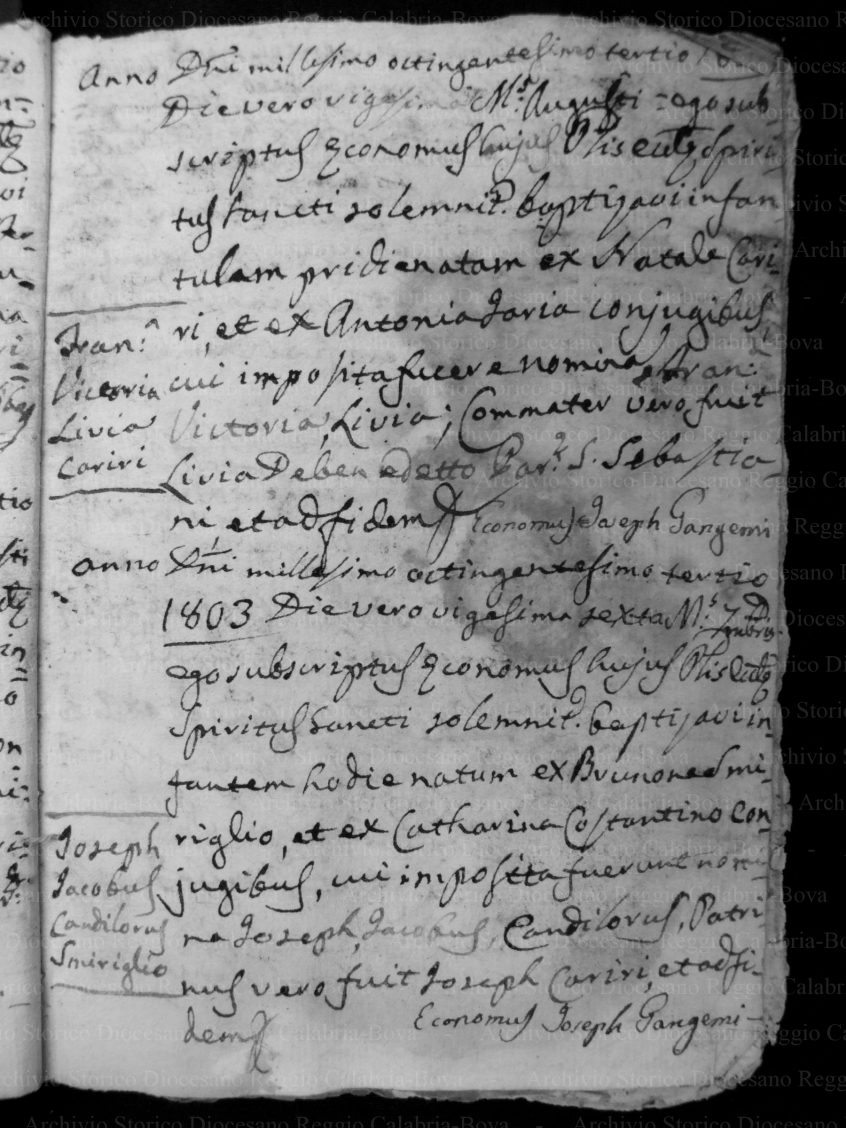 Anno Dñi millesimo octingentesimo tertio
Die vero M.s Augusti = ego sub
scriptus Economus hujus Plis Spiri-
tus Sancti solemnit. baptizavi infan
tulam pridie natam ex Natale Cari-
ri, et ex Antonia Jaria conjugibus,
cui imposita fuere nomina Fran:
Victoria, Livia; Commater vero fuit
Livia De benedetto Par: S. Sebastia
ni, et ad fidem
Economus Joseph Gangemi
Fran:
Victoria
Livia
Cariri
anno Dñi millesimo octingentesimo tertio
1803 Die vero vigesima sexta M.s 7mbris
ego subscriptus Economus hujus Plis
Spiritus Sancti solemnit. baptizavi in-
fantem hodie natum ex Brunone Smi-
riglio, et ex Catharina Costantino con-
jugibus, cui imposita fuerunt nomi
na Joseph, Jacobus, Candilorus, Patri-
nus vero fuit Joseph Cariri, et ad fi-
dem
Economus Joseph Gangemi
Joseph
Jacobus
Candilorus
Smiriglio
Archivio Storico Diocesano Reggio Calabria-Bova